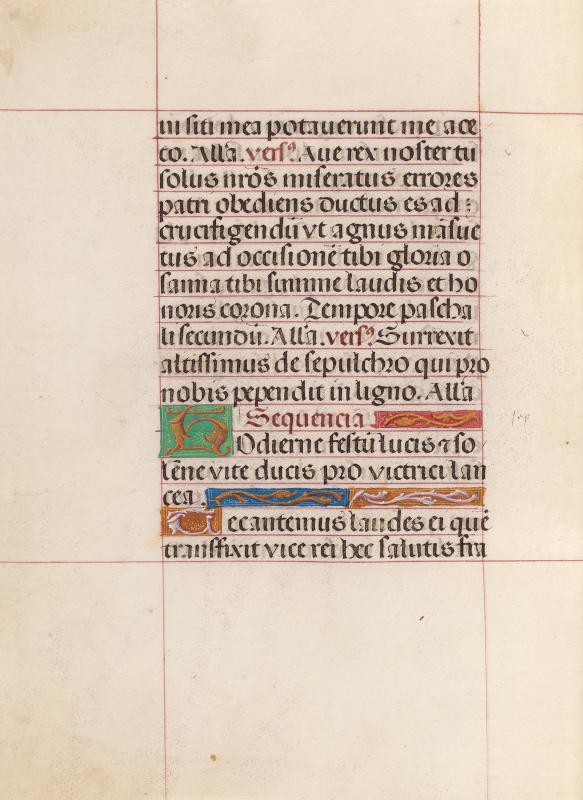 in siti mea potaverunt me ace
co. Alla. versꝰ. Aue rex noster tu
solus nr̄os miseratus errores
patri obediens ductus es ad :
crucifigendū vt agnus māsue
tus ad occisionē tibi gloria o
sanna tibi summe laudis et ho
noris corona. Tempore pascha
li secundū. Alla. versꝰ. Surrexit
altissimus de sepulchro qui pro
nobis pependit in ligno. Alla
Sequencia
HOdierne festū lucis ⁊ so
lēne vite ducis pro victrici lan
cea.
Decantemus laudes ei quē
transfixit vice rei hec salutis fra